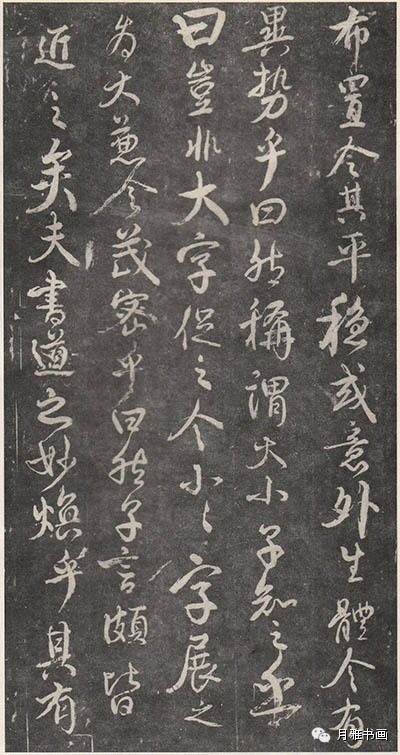 布置令其平穩或意外生體令有
異勢乎曰然稱謂大小子知之乎
曰豈非大字促之令小〻字展之
為大兼令茂密乎曰然子言頗皆
近之矣夫書道之妙煥乎其有
月雅书画